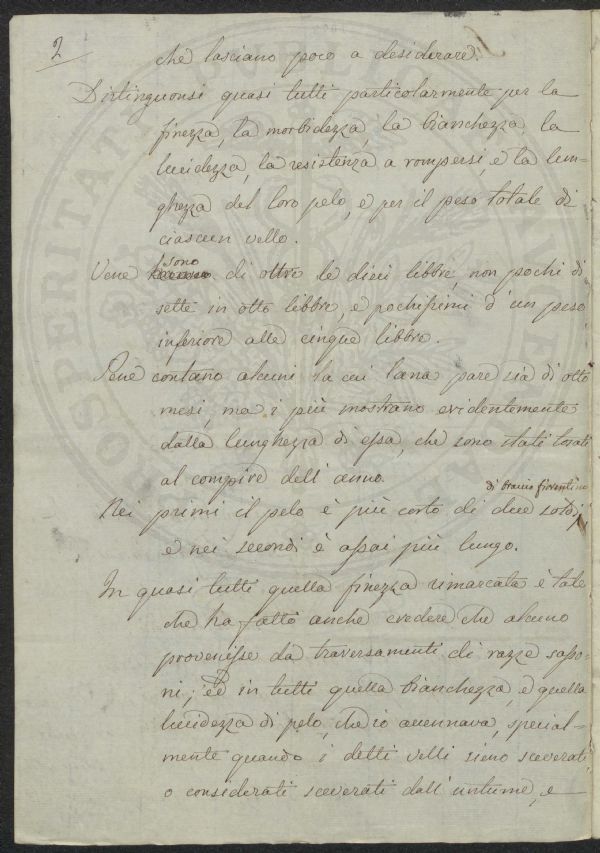 2
che lasciano poco a desiderare.
Distinguonsi quasi tutti particolarmente per la
finezza, la morbidezza, la bianchezza, la
lucidezza, la resistenza a rompersi, e la lun-
ghezza del loro pelo, e per il peso totale di
ciascun vello.
sono
Vene di oltre le dieci libbre, non pochi di
sette in otto libbre, e pochissimi d'un peso
inferiore alle cinque libbre.
Sene contano alcuni la cui lana pare sia di otto
mesi, ma i più mostrano evidentemente
dalla lunghezza di essa, che sono stati tosati
al compire dell'anno.
di braccio fiorentino
Nei primi il pelo è più corto di due soldi
e nei secondi è assai più lungo.
In quasi tutti quella finezza rimarcata è tale
che ha fatto anche credere che alcuno
provenisse da traversamenti di razze sasso-
ni; ed in tutti quella bianchezza, e quella
lucidezza di pelo, che io accennava, special-
mente quando i detti velli sieno sceverati,
o considerati sceverati dall'untume, e